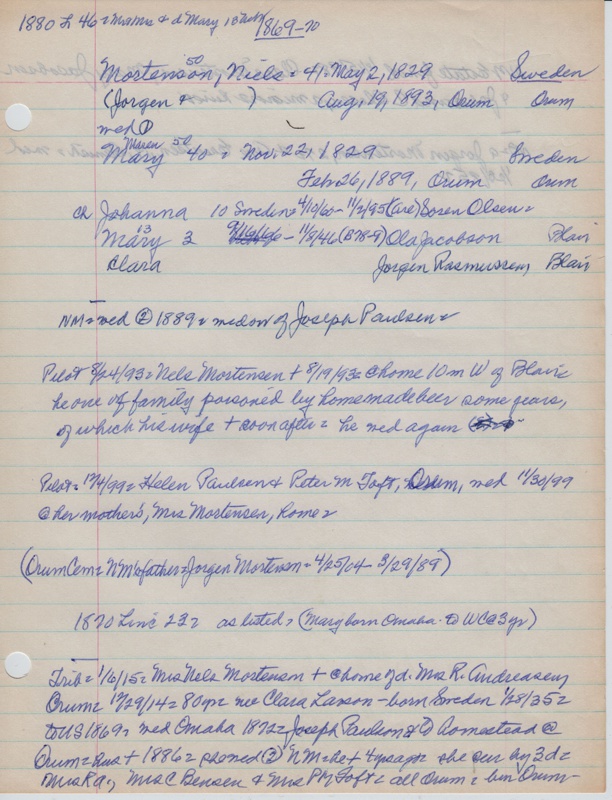 1880 L 46 = & d Mary 13
1869-70
Mortenson, Niels = 41 = May 2, 1829 Sweden
50
(Jorgen & ) Aug, 19, 1893, Orum Orum
med ①
Maren 50
Mary 40 = Nov. 22, 1829 Sweden
Feb 26, 1889, Orum Orum
ch Johanna 10 Sweden = 4/10/60 - 11/2/95 (Care) Soren Olsen =
13
Mary 3 - 11/8/46 (B78-8) Ola Jacobson Blair
Clara Jorgen Rasmussen, Blair
NM = med ② 1889 = widow of Joseph Paulsen =
Pilot 8/24/93 = Nels Mortensen + 8/19/93 = @ home 10 m W of Blair =
he one of family poisoned by home made beer some years,
of which his wife + soon after = he med again
Pilot = 12/4/99 = Helen Paulsen & Peter M Toft, Orum, med 11/30/99
@ her mother's, Mrs Mortensen, Rome =
(Orum Cem = NM's father = Jorgen Mortensen = 4/25/04 - 3/29/89)
1870 Line 23 = as listed = (Mary born Omaha - to WC @ 3 yr)
Trib = 1/6/15 = Mrs Nels Mortensen + @ home of d. Mrs R. Andreasen,
Orum = 12/29/14 = 80 yr = nee Clara Larson - born Sweden 1/28/35 =
to US 1869 = med Omaha 1872 = Joseph Paulson & to homestead @
Orum = hus + 1886 = she med ② NM = he + 4 yrs ago = she sur by 3 d =
Mrs RA, Mrs C Bensen & Mrs PM Toft = all Orum = bur Orum -